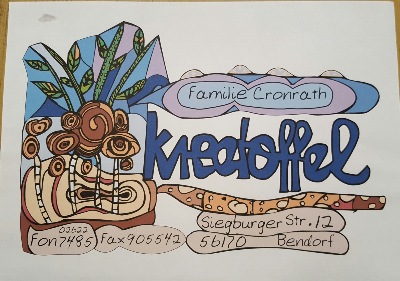 Familie Cronrath
kreatoffel
Siegburger Str. 12
56170 Bendorf
02622
Fon 7485 Fax 905542